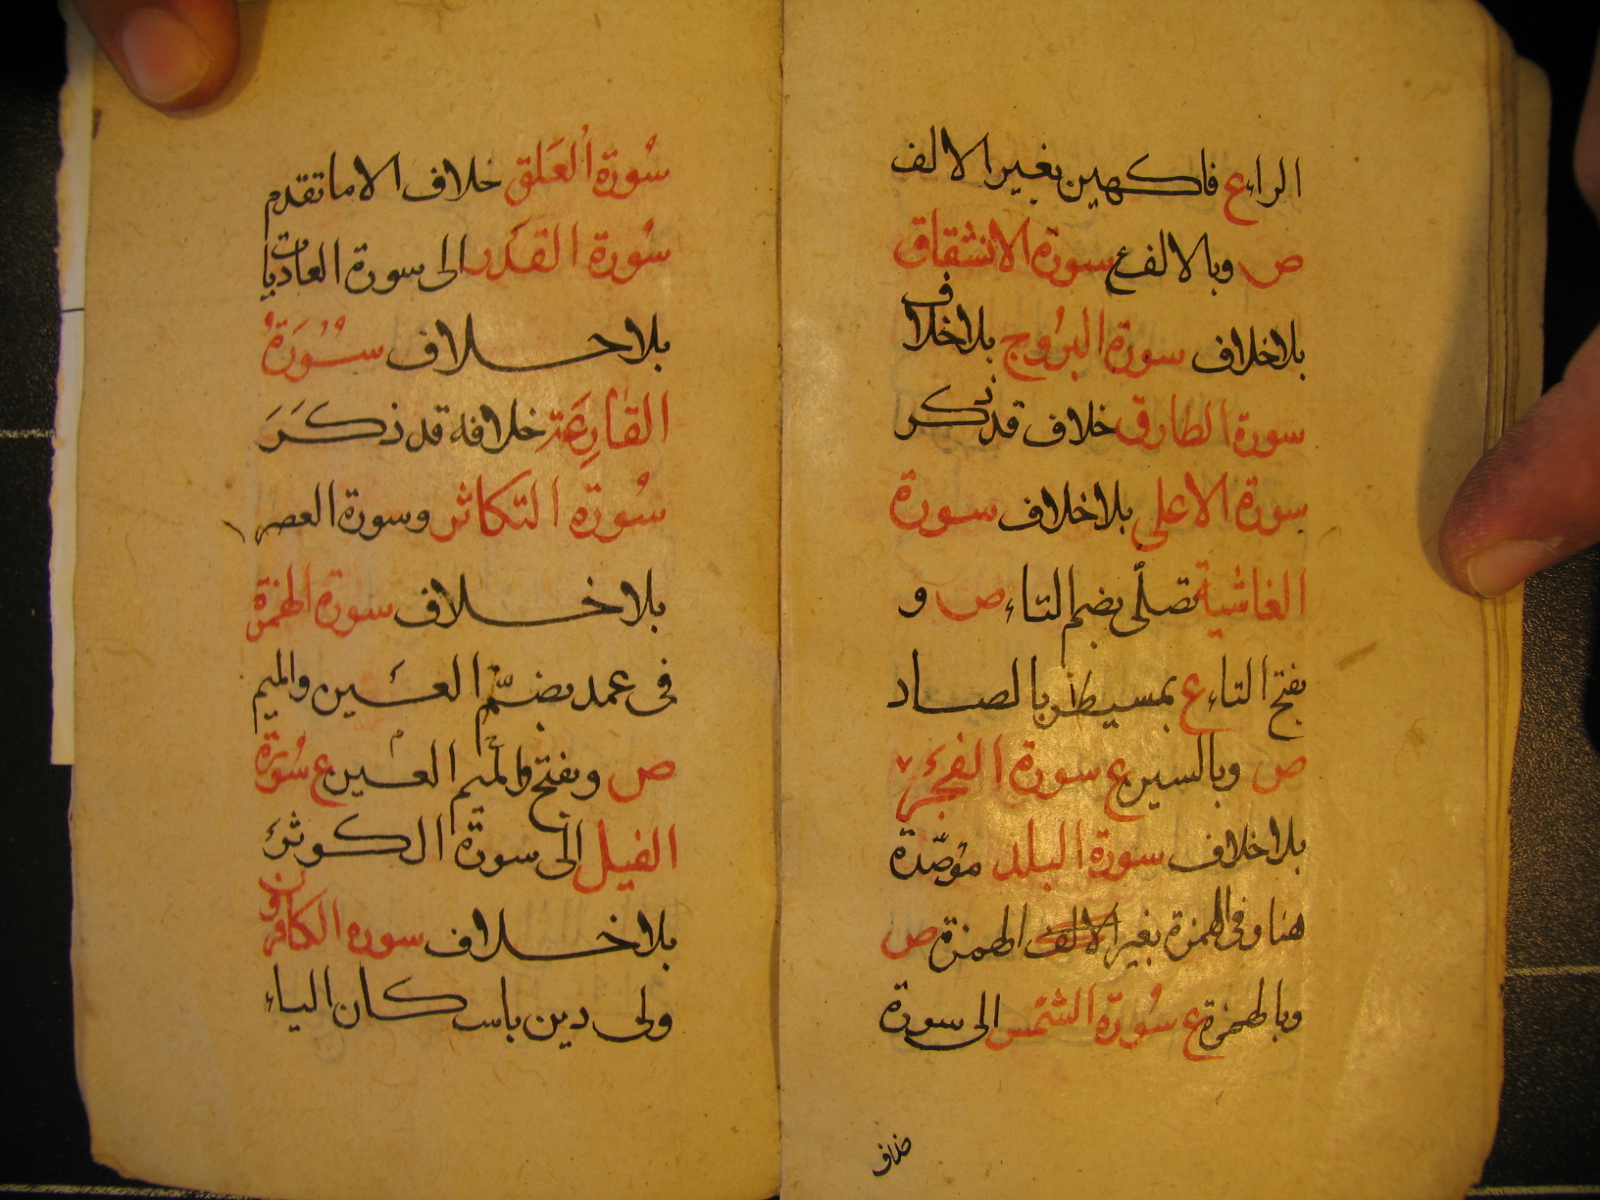 الراء ع فاكهين بغير الالف
ص وبالالف ع سورة الانشقاق
بلاخلاف سورة البروج بلاخلاف
سورة الطارق خلاف قد ذكر
سورة الاعلى بلاخلاف سورة
الغاشية تصلّى بضم التاء ص و
بفتح التاء ع بمسيطر بالصاد
ص وبالسين ع سورة الفجر
بلاخلاف سورة البلد موصدة
هنا وفى الهمزة بغير الالف الهمزة ص
وبالهمزة ع سورة الشمس الى سورة
خلاف
سُورة العَلق خلاف الا ما تقدم
سُورة القدر الى سورة العاديات
بلاخلاف سُورَةُ
القارِعَة خلافه قد ذكَرَ
سُورة التكاثر وسورة العصر
بلاخلاف سورة الهمزة
فى عمد بضمّ العَين والميم
ص وبفتح والميم العين ع سُورة
الفيل الى سورة الكوثر
بلاخلاف سوره الكافرون
ولى دين باسكان الياء